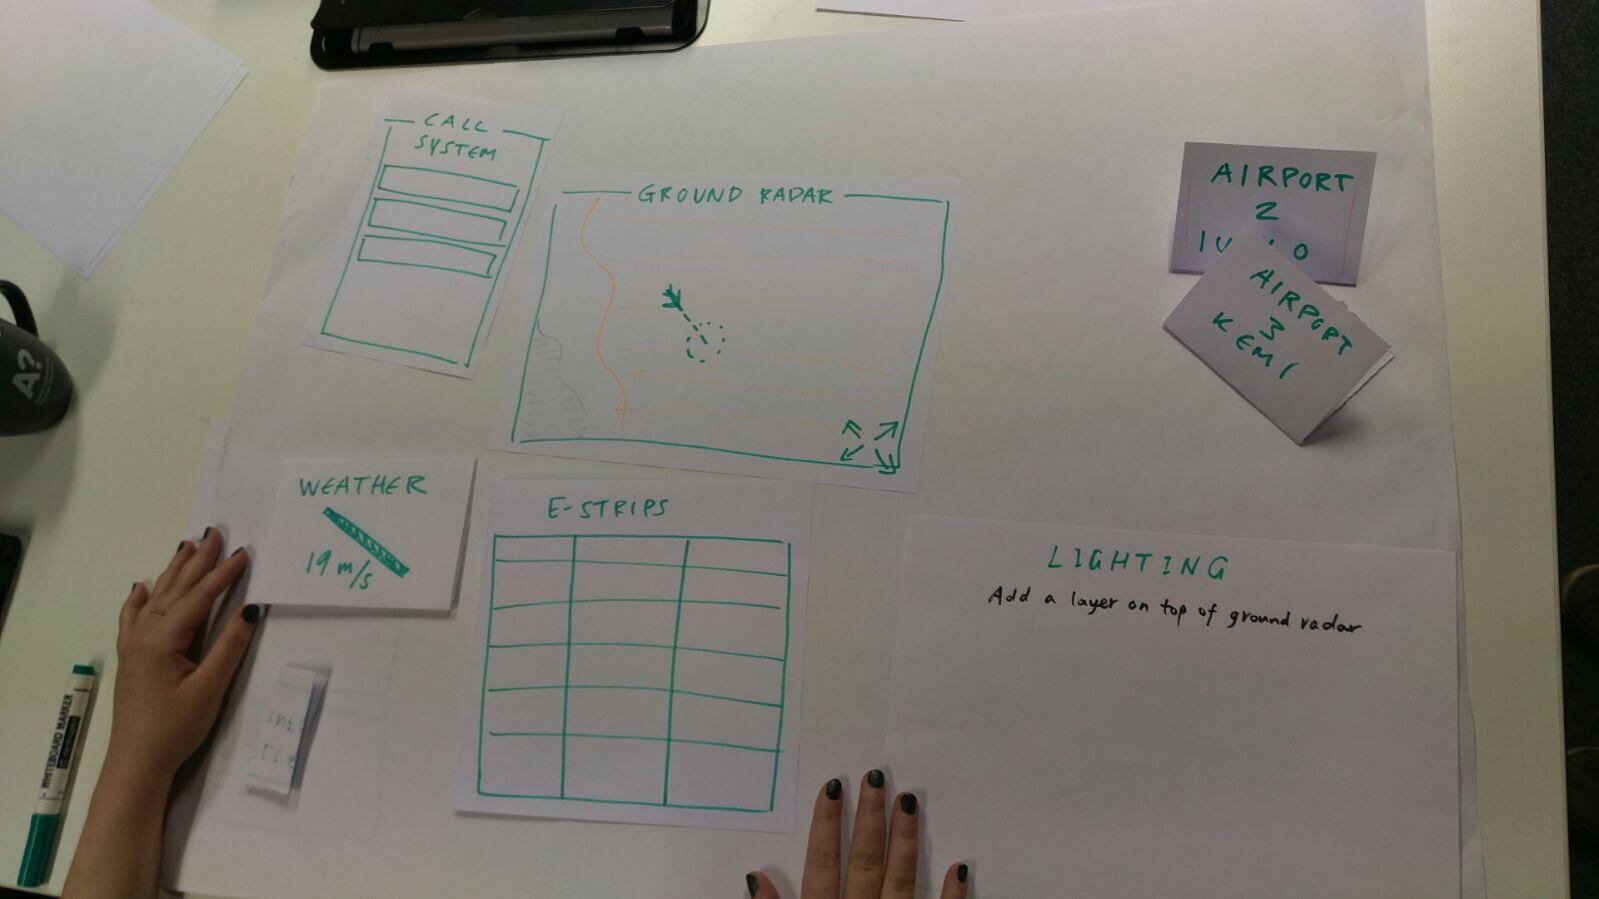 CALL
SYSTEM
GROUND RADAR
AIRPORT
2
AIRPORT
3
KEMI
WEATHER
19 m/s
E-STRIPS
LIGHTING
Add a layer on top of ground radar
A?
WHITEBOARD MARKER